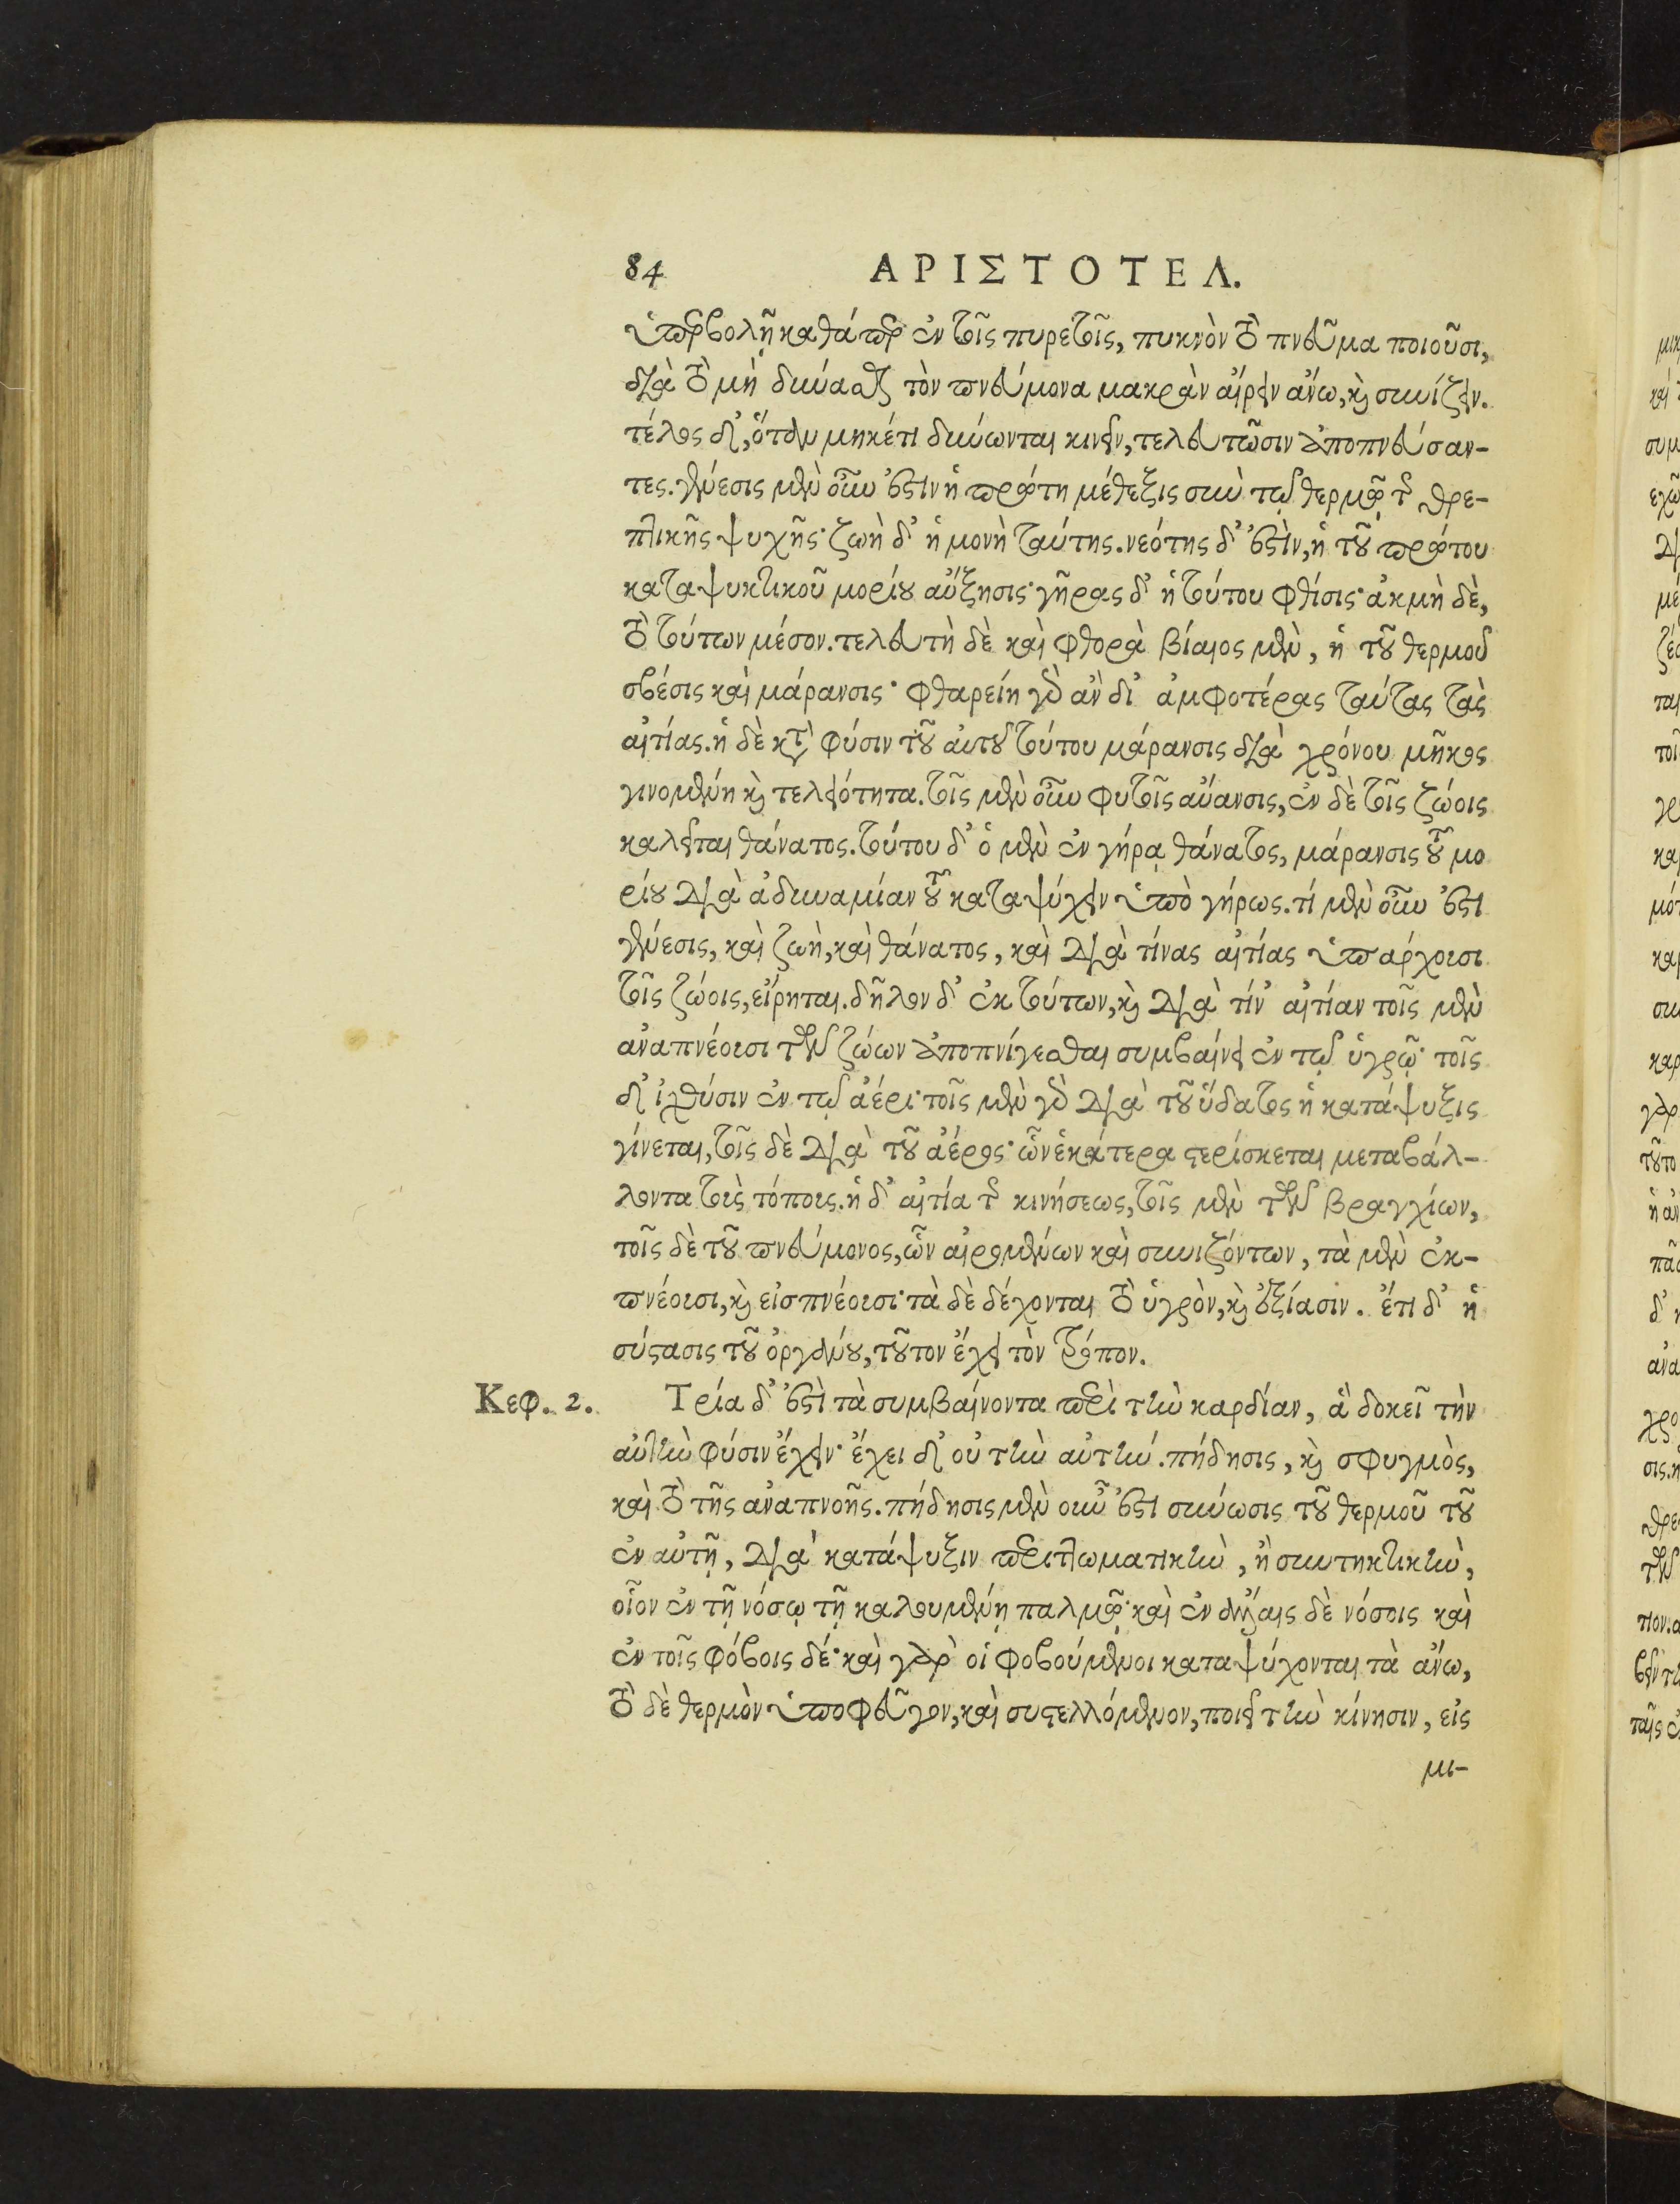 84 ΑΡΙΣΤΟΤΕΛ.
ὑπερβολῇ καθάπερ ἐν τοῖς πυρετοῖς, πυκνὸν τὸ πνεῦμα ποιοῦσι,
διὰ τὸ μὴ δύναϑαι τὸν πνεύμονα μακρὰν αἴρειν ἄνω, καὶ συνίζειν.
τέλος δ', ὅταν μηκέτι δύνωνται κινεῖν, τελευτῶσιν ἀποπνεύσαν-
τες. γένεσις μὲν οὖν ἐστὶν ἡ πρώτη μέθεξις σὺν τῷ θερμῷ τῆς θρε-
πτικῆς ψυχῆς· ζωὴ δ' ἡ μονὴ ταύτης. νεότης δ' ἐστὶν, ἡ τοῦ πρώτου
καταψυκτικοῦ μορίου αὔξησις· γῆρας δ' ἡ τούτου φθίσις· ἀκμὴ δὲ,
τὸ τούτων μέσον. τελευτὴ δὲ καὶ φθορὰ βίαιος μὲν, ἡ τοῦ θερμοῦ
σβέσις καὶ μάρανσις· φθαρείη γὰρ ἂν δι' ἀμφοτέρας ταύτας τὰς
αἰτίας. ἡ δὲ κατὰ φύσιν τοῦ αὐτοῦ τούτου μάρανσις διὰ χρόνου μῆκος
γινομένη καὶ τελειότητα. τοῖς μὲν οὖν φυτοῖς αὔανσις, ἐν δὲ τοῖς ζώοις
καλεῖται θάνατος. τούτου δ' ὁ μὲν ἐν γήρᾳ θάνατος, μάρανσις τοῦ μο
ρίου διὰ ἀδυναμίαν τοῦ καταψύχειν ὑπὸ γήρως. τί μὲν οὖν ἐστι
γένεσις, καὶ ζωὴ, καὶ θάνατος, καὶ διὰ τίνας αἰτίας ὑπάρχουσι
τοῖς ζώοις, εἴρηται. δῆλον δ' ἐκ τούτων, καὶ διὰ τίν' αἰτίαν τοῖς μὲν
ἀναπνέουσι τῶν ζώων ἀποπνίγεσθαι συμβαίνει ἐν τῷ ὑγρῷ· τοῖς
δ' ἰχθύσιν ἐν τῷ ἀέρι· τοῖς μὲν γὰρ διὰ τοῦ ὕδατος ἡ κατάψυξις
γίνεται, τοῖς δὲ διὰ τοῦ ἀέρος· ὧν ἑκάτερα στερίσκεται μεταβάλ-
λοντα τοὺς τόπους. ἡ δ' αἰτία τῆς κινήσεως, τοῖς μὲν τῶν βραγχίων,
τοῖς δὲ τοῦ πνεύμονος, ὧν αἰρομένων καὶ συνιζόντων, τὰ μὲν ἐκ-
πνέουσι, καὶ εἰσπνέουσι· τὰ δὲ δέχονται τὸ ὑγρὸν, καὶ ἐξιᾶσιν. ἔτι δ' ἡ
σύστασις τοῦ ὀργάνου, τοῦτον ἔχει τὸν τρόπον.
Κεφ. 2. Τρία δ' ἐστὶ τὰ συμβαίνοντα περὶ τὴν καρδίαν, ἃ δοκεῖ τὴν
αὐτὴν φύσιν ἔχειν· ἔχει δ' οὐ τὴν αὐτήν. πήδησις, καὶ σφυγμὸς,
καὶ τὸ τῆς ἀναπνοῆς. πήδησις μὲν οὖν ἐστι σύνωσις τοῦ θερμοῦ τοῦ
ἐν αὐτῇ, διὰ κατάψυξιν περιττωματικὴν, ἢ συντηκτικὴν,
οἷον ἐν τῇ νόσῳ τῇ καλουμένῃ παλμῷ· καὶ ἐν ἄλλαις δὲ νόσοις καὶ
ἐν τοῖς φόβοις δέ· καὶ γὰρ οἱ φοβούμενοι καταψύχονται τὰ ἄνω,
τὸ δὲ θερμὸν ὑποφεῦγον, καὶ συστελλόμενον, ποιεῖ τὴν κίνησιν, εἰς
μι-